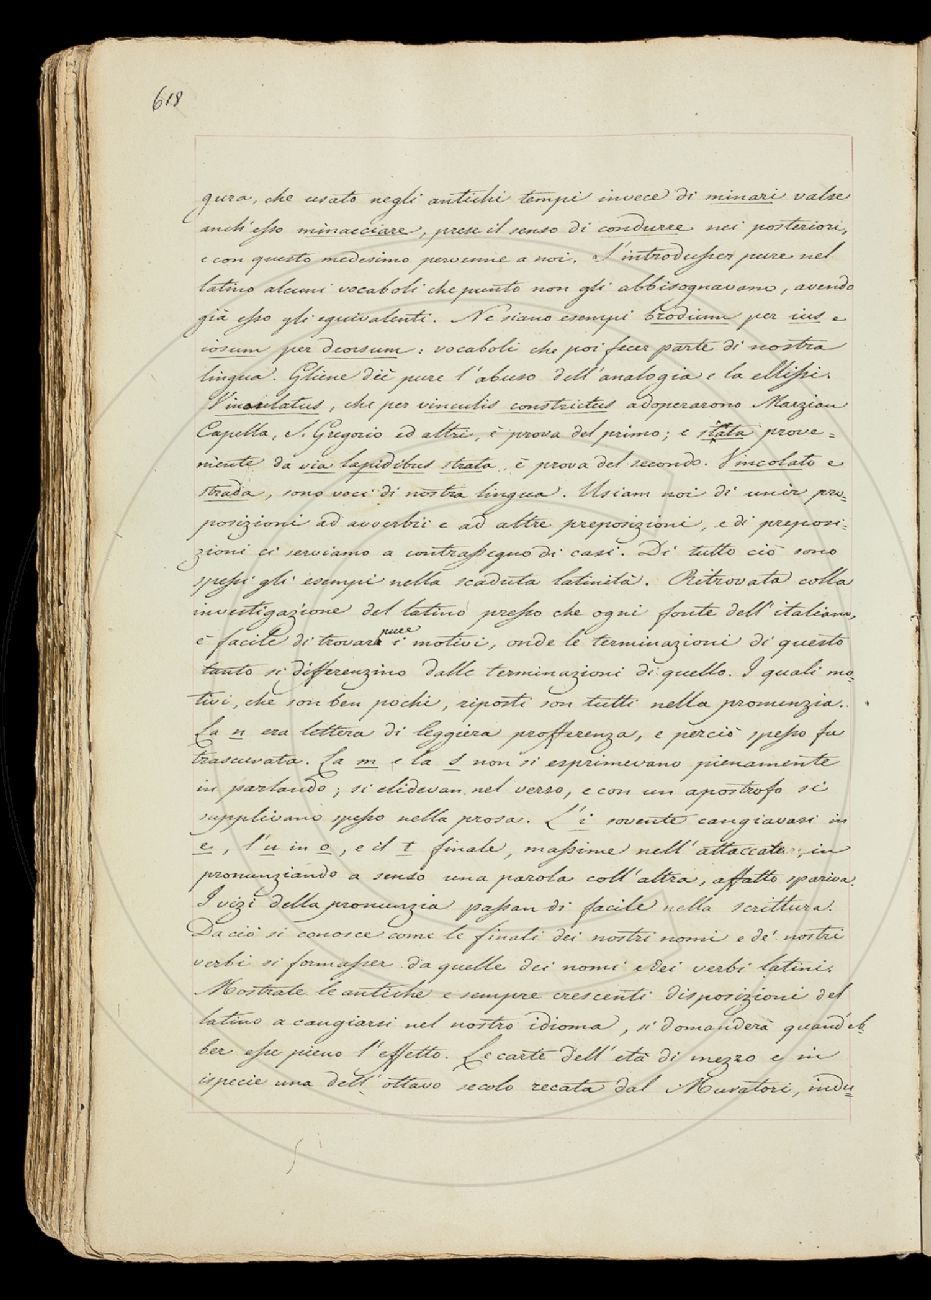 618
gura, che usato negli antichi tempi invece di minari valse
anch'esso minacciare, prese il senso di condurre nei posteriori,
e con questo medesimo pervenne a noi. S'introdusser pure nel
latino alcuni vocaboli che punto non gli abbisognavano, avendo
già esso gli equivalenti. Ne siano esempi brodium per ius e
iosum per deorsum: vocaboli che poi fecer parte di nostra
lingua. Gliene diè pure l'abuso dell'analogia e la ellissi.
Vinculatus, che per vinculis constrictus adoperarono Marzian
Capella, S. Gregorio ed altri, è prova del primo; e prove=
niente da via lapidibus strata, è prova del secondo. Vincolato e
strada, sono voci di nostra lingua. Usiam noi di unir pre=
posizioni ad avverbii e ad altre preposizioni, e di preposi=
zioni ci serviamo a contrassegno di casi. Di tutto ciò sono
spessi gli esempi nella scaduta latinità. Ritrovata colla
investigazione del latino presso che ogni fonte dell'italiano,
è facile di trovare pure i motivi, onde le terminazioni di questo
tanto si differenzino dalle terminazioni di quello. I quali mo=
tivi, che son ben pochi, riposti son tutti nella pronunzia.
La n era lettera di leggiera profferenza, e perciò spesso fu
trascurata. La m e la s non si esprimevano pienamente
in parlando; si elidevan nel verso, e con un apostrofo si
supplivano spesso nella prosa. L'i sovente cangiavasi in
e, l'u in o, e il t finale, massime nell'attaccate, in
pronunziando a senso una parola coll'altra, affatto spariva.
I vizi della pronunzia passan di facile nella scrittura.
Da ciò si conosce come le finali dei nostri nomi e de' nostri
verbi si formasser da quelle dei nomi e dei verbi latini.
Mostrate le antiche e sempre crescenti disposizioni del
latino a cangiarsi nel nostro idioma, si domanderà quand'eb=
ber esse pieno l'effetto. Le carte dell'età di mezzo e in
ispecie una dell'ottavo secolo recata dal Muratori, indu=